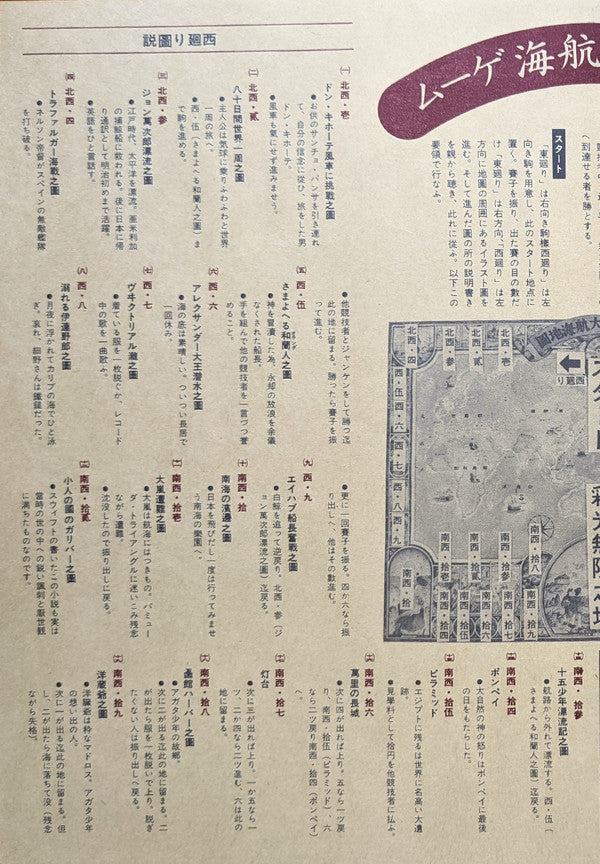 航海ゲーム
へ到達せる者を勝とする。
スタート
「東廻り」は右向き駒「西廻り」は左
向き駒を用意し、此のスタート地点に
置く。賽子を振り、出た賽の目の数だ
け「東廻り」は右方向、「西廻り」は左
方向に地圖の周囲にあるイラスト圖を
進む。そして進んだ圖の所の説明書き
を親から聴き、此れに従ふ。以下この
要領で行なふ。
大航海地圖
西廻り
北西・壱
北西・貳
北西・参
西・伍
西・六
西・七
西・八
西・九
南西・拾
南西・拾壱
南西・拾貳
南西・拾参
南西・拾四
南西・拾伍
南西・拾六
南西・拾七
南西・拾八
西廻り圖説
(一) 北西・壱
ドン・キホーテ風車に挑戦之圖
●お供のサンチョ・パンサを引き連れ
て、自分の信念に従ひ、旅をした男
ドン・キホーテ。
●風車も氣にせず進みませう。
(二) 北西・貳
八十日間世界一周之圖
●主人公は気球に乗りふわふわと世界
一周の旅へ。
●西・伍(さまよへる和蘭人之圖)ま
で駒を進める。
(三) 北西・参
ジョン萬次郎漂流之圖
●江戸時代、太平洋を漂流。亜米利加
の捕鯨船に救われる。後に日本に帰
り通訳として明治初めまで活躍。
●英語をひと言話す。
(四) 北西・四
トラファルガー海戦之圖
●ネルソン帝督がスペインの無敵艦隊
を打ち破る。
●他競技者とジャンケンをして勝つ迄
此の地に留まる。勝ったら賽子を振
って進む。
(五) 西・伍
さまよへる和蘭人之圖
●神を冒瀆した為、永却の放浪を余儀
なくされた船長。
●手を組んで他の競技者を一言づつ賞
めること。
(六) 西・六
アレクサンダー大王潜水之圖
●海の底は素晴しい。ついつい長居で
一回休み。
(七) 西・七
ヴヰクトリアル瀧之圖
●着ている服を一枚脱ぐか、レコード
中の歌を一曲歌ふ。
(八) 西・八
溺れる伊達野郎之圖
●月夜に浮かれてカリブの海でひと泳
ぎ。哀れ、細野さんは鑵鎚だった。
●更に一回賽子を振る。四か六なら振
り出しへ、他はその數進む。
(九) 西・九
エイハブ船長奮戦之圖
●白鯨を追って逆戻り。北西・参(ジ
ョン萬次郎漂流之圖)迄戻る。
(十) 南西・拾
南海の濱邊之圖
●日本を飛びだし一度は行ってみませ
う南海の樂園へ。
(十一) 南西・拾壱
大嵐遭難之圖
●大嵐は航海にはつきもの。バミュー
ダ・トライアングルに迷いこみ残念
ながら遭難。
●沈没したので振り出しに戻る。
(十二) 南西・拾貳
小人の國のガリバー之圖
●スウィフトの書いたこの小説も実は
當時の世の中への鋭い諷刺と厭世觀
に満ちたものなのです。
(十三) 南西・拾参
十五少年漂流記之圖
●航路から外れて漂流する。西・伍(
さまよへる和蘭人之圖)迄戻る。
(十四) 南西・拾四
ポンペイ
●大自然の神の怒りはポンペイに最後
の日をもたらした。
(十五) 南西・拾伍
ピラミッド
●エジプトに残るは世界に名高い大遺
跡。
●見學料として拾円を他競技者に払ふ。
(十六) 南西・拾六
萬里の長城
●次に四が出れば上り。五なら一ツ戻
り、南西・拾伍(ピラミッド)、六
なら二ツ戻り南西・拾四(ポンペイ)
へ。
(十七) 南西・拾七
灯台
●次に三が出れば上り。一か五なら一
ツ、二か四なら二ツ進む、六は此の
地に留まる。
(十八) 南西・拾八
函館ハーバー之圖
●アガタ少年の故郷。
●次に二が出る迄此の地に留まる。二
が出たら服を一枚脱いで上り。脱ぎ
たくない人は振り出しへ戻る。
(十九) 南西・拾九
洋蔵爺之圖
●洋蔵爺は粋なマドロス。アガタ少年
の想い出の人。
●次に一が出る迄此の地に留まる。但
し、二が出たら海に落ちて没(残念
ながら失格)。